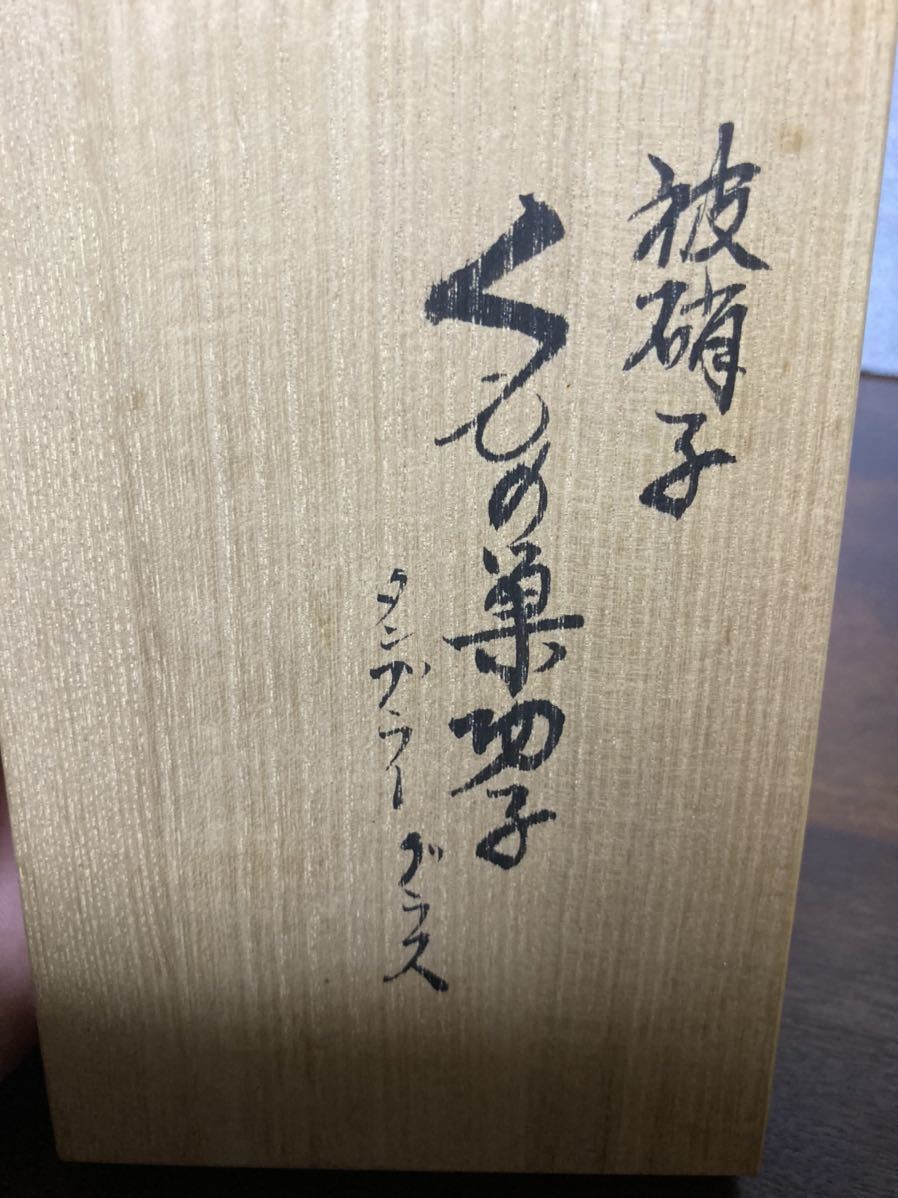 被硝子
くもの巣切子
タンブラーグラス